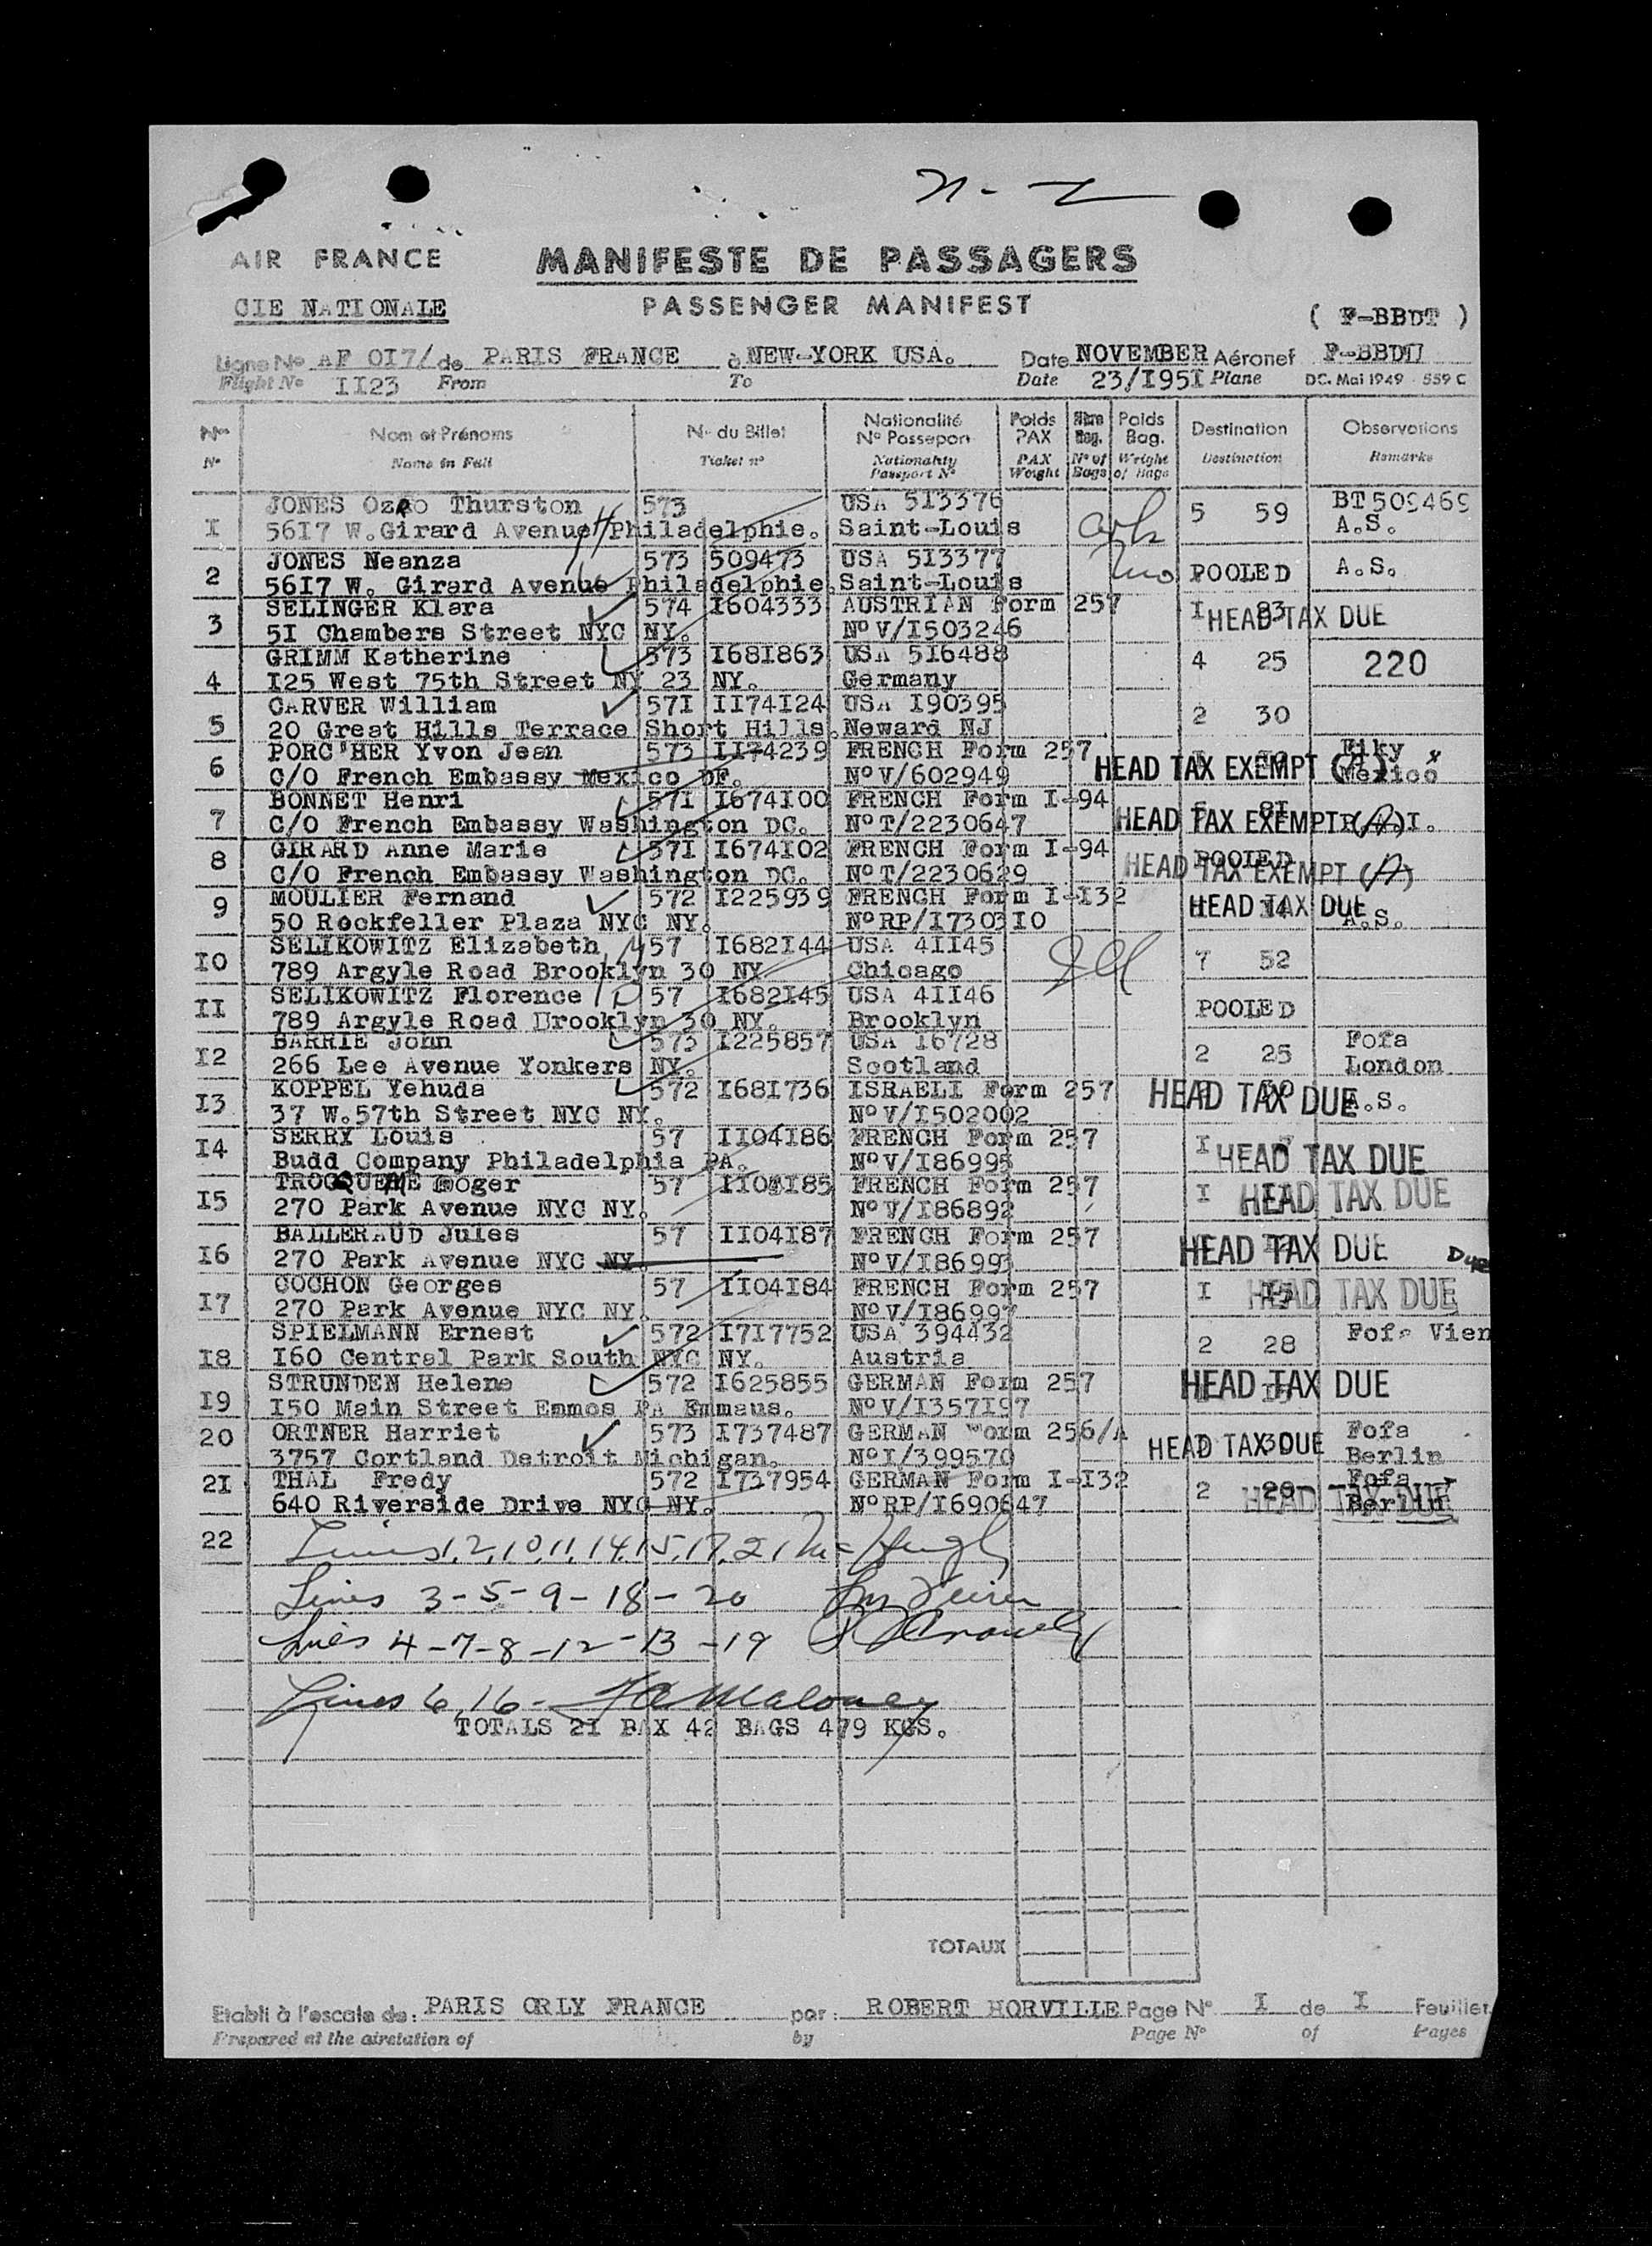 AIR FRANCE
MANIFESTE DE PASSAGERS
CIE NATIONALE
PASSENGER MANIFEST
( F-BBDT )
Ligne No AF 017/ de PARIS FRANCE à NEW-YORK USA. Date NOVEMBER Aéronef
Flight No II23 From To Date 23/I95I Plane DC. Mai 1949 - 559 C
Nos Nom et Prénoms No du Billet Nationalité No Passeport Poids PAX Nbre Bag. Poids Bag. Destination Observations
No Name in Full Ticket no Nationality Passport No PAX Weight No of Bags Weight of Bags Destination Remarks
JONES Thurston 573 USA 513376 5 59 BT 509469
I 56I7 W.Girard Avenue Philadelphie. Saint-Louis A.S.
JONES Neanza 573 509473 USA 513377
2 56I7 W. Girard Avenue Philadelphie. Saint-Louis POOLED A.S.
SELINGER Klara 574 I604333 AUSTRIAN Form 257 I 83
3 5I Chambers Street NYC NY. No V/I503246 HEAD TAX DUE
GRIMM Katherine 573 I68I863 USA 516488 4 25 220
4 I25 West 75th Street NY 23 NY. Germany
CARVER William 57I II74I24 USA I90395 2 30
5 20 Great Hills Terrace Short Hills. Neward NJ
PORC'HER Yvon Jean 573 II74239 FRENCH Form 257
6 C/O French Embassy Mexico DF. No V/602949 HEAD TAX EXEMPT Mexico
BONNET Henri 57I I674I00 FRENCH Form I-94 8I
7 C/O French Embassy Washington DC. No T/2230647 HEAD TAX EXEMPT (A)
GIRARD Anne Marie 57I I674I02 FRENCH Form I-94 POOLED
8 C/O French Embassy Washington DC. No T/2230629 HEAD TAX EXEMPT (A)
MOULIER Fernand 572 I225939 FRENCH Form I-I32 HEAD TAX DUE
9 50 Rockfeller Plaza NYC NY. No RP/I7303I0 A.S.
SELIKOWITZ Elizabeth 57 I682I44 USA 4II45
I0 789 Argyle Road Brooklyn 30 NY Chicago 7 52
SELIKOWITZ Florence 57 I682I45 USA 4II46
II 789 Argyle Road Brooklyn 30 NY. Brooklyn POOLED
BARRIE John 573 I225857 USA I6728 Fofa
I2 266 Lee Avenue Yonkers NY. Scotland 2 25 London
KOPPEL Yehuda 572 I68I736 ISRAELI Form 257 HEAD TAX DUE
I3 37 W.57th Street NYC NY. No V/I502002 A.S.
SERRY Louis 57 II04I86 FRENCH Form 257 I
I4 Budd Company Philadelphia PA. No V/I86995 HEAD TAX DUE
57 FRENCH Form 257 I
I5 270 Park Avenue NYC NY. No V/I86892 HEAD TAX DUE
BALLERAUD Jules 57 II04I87 FRENCH Form 257
I6 270 Park Avenue NYC NY. No HEAD TAX DUE
COCHON Georges 57 II04I84 FRENCH Form 257 I
I7 270 Park Avenue NYC NY. No V/I86997 HEAD TAX DUE
SPIELMANN Ernest 572 I7I7752 USA 394432 Fofa Vien
I8 I60 Central Park South NYC NY. Austria 2 28
STRUNDEN Helene 572 I625855 GERMAN Form 257 HEAD TAX DUE
I9 I50 Main Street Emmos PA Emmaus. No V/I357I97
20 ORTNER Harriet 573 I737487 GERMAN Form 256/A Fofa
3757 Cortland Detroit Michigan. No I/399570 HEAD TAX DUE Berlin
2I THAL Fredy 572 I737954 GERMAN Form I-I32 2 29 Fofa
640 Riverside Drive NYC NY. No RP/I690647 HEAD TAX DUE Berlin
22 Lines 1,2,10,11,14,15,17,21 McHugh
Lines 3-5-9-18-20
Lines 4-7-8-12-13-19
Lines 6,16- Maloney
TOTALS 2I PAX 42 BAGS 479 KGS.
TOTAUX
Etabli à l'escale de: PARIS ORLY FRANCE par: ROBERT HORVILLE Page No I de I Feuillet
Prepared at the airstation of by Page No of Pages